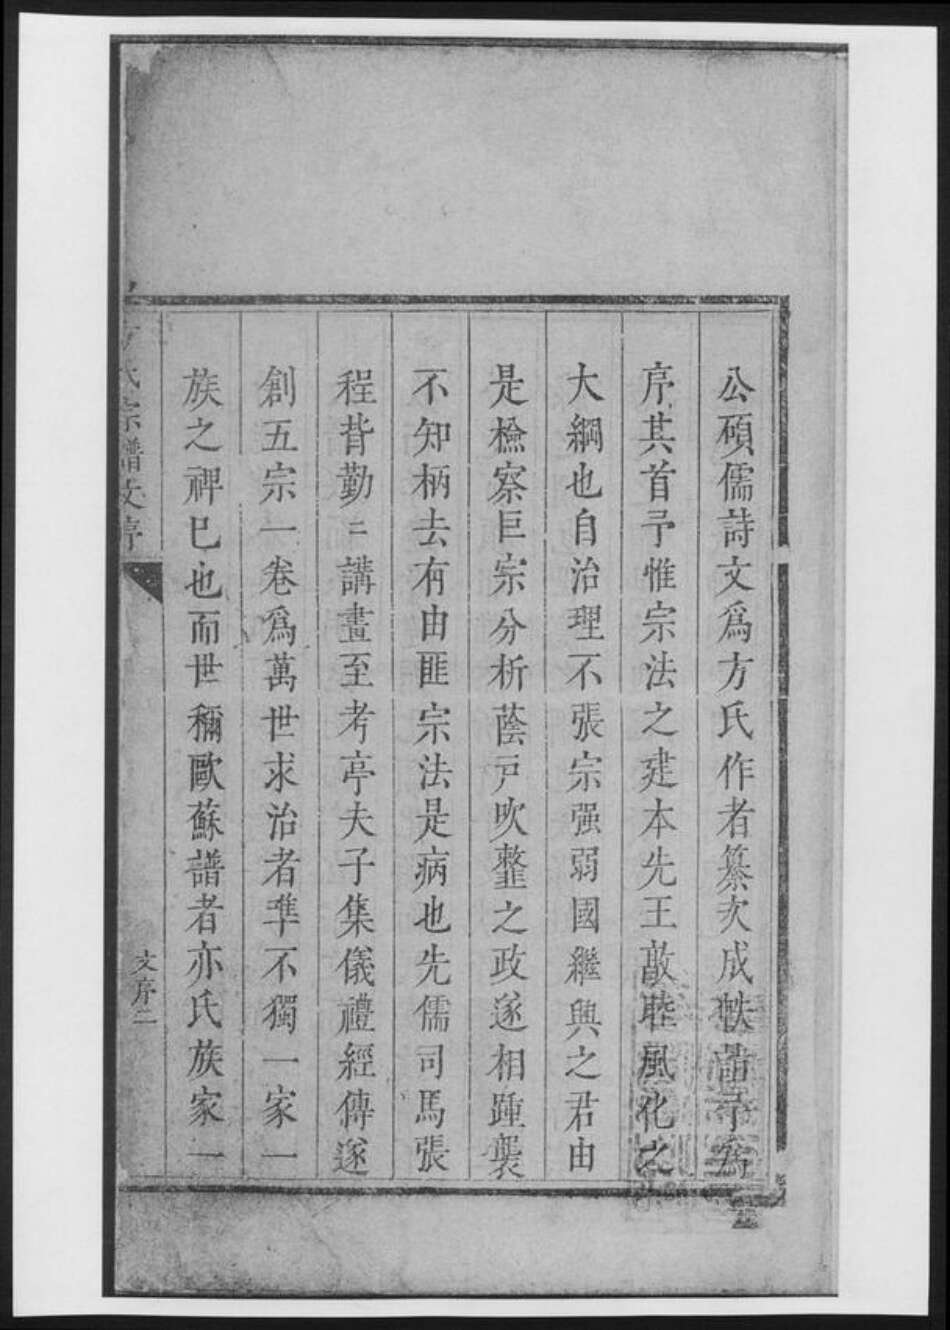 公碩儒詩文爲方氏作者纂次成帙請予爲
序其首予惟宗法之建本先王敦睦風化之
大綱也自治理不張宗强弱國繼興之君由
是檢察巨宗分析蔭戸吹虀之政遂相踵襲
不知柄去有由匪宗法是病也先儒司馬張
程皆勤二講畫至考亭夫子集儀禮經傳遂
創五宗一卷爲萬世求治者凖不獨一家一
族之裨巳也而世稱歐蘇譜者亦氏族家一
方氏宗譜文序
文序二